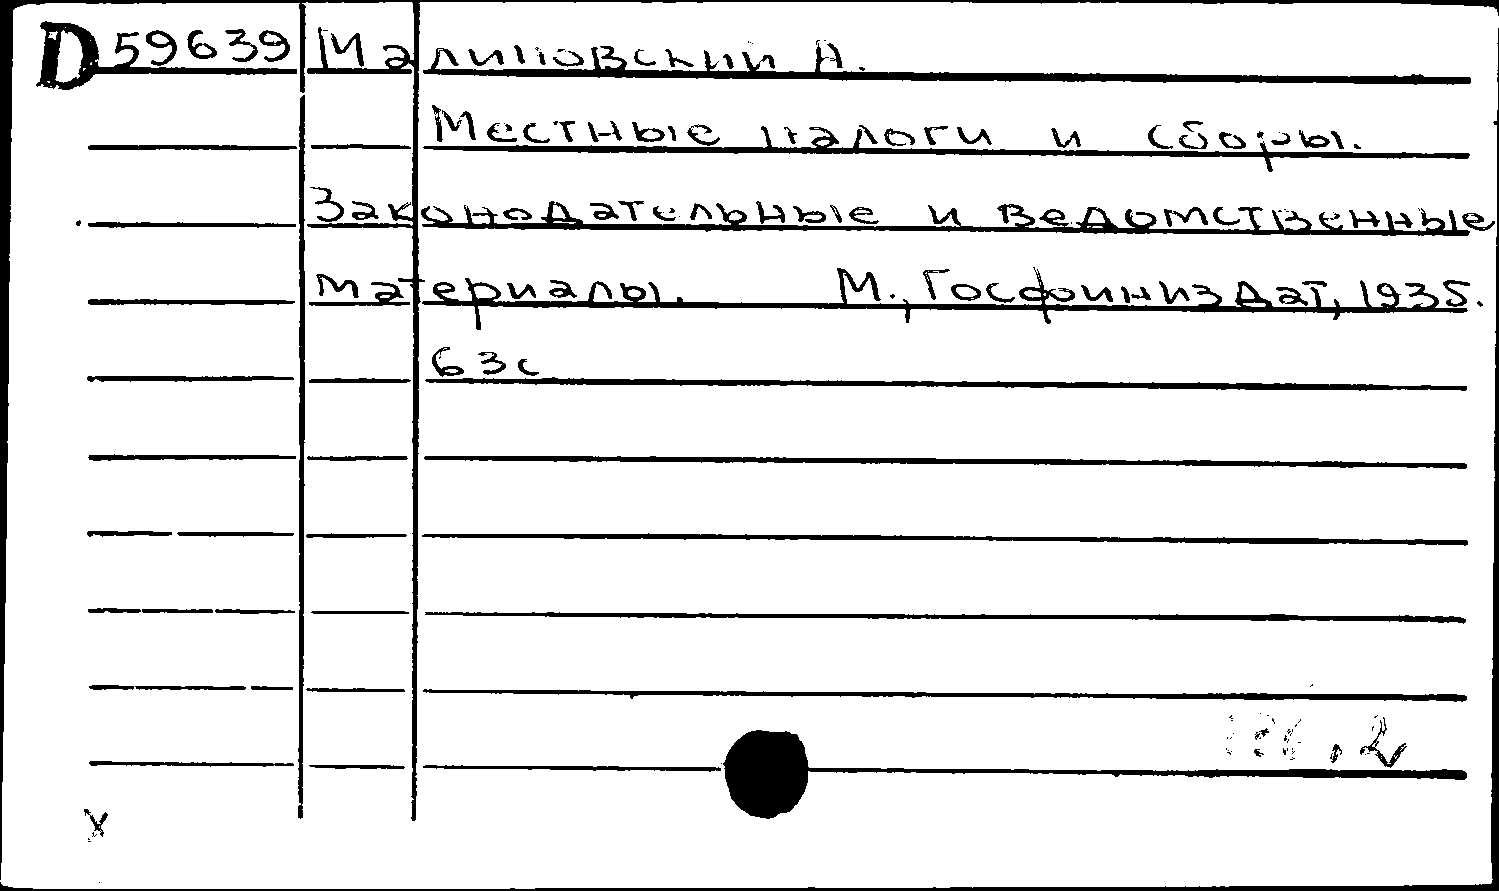 D 59639 Малиновский А.
Местные налоги и сборы.
Законодательные и ведомственные
материалы. М., Госфиниздат, 1935.
63с
x